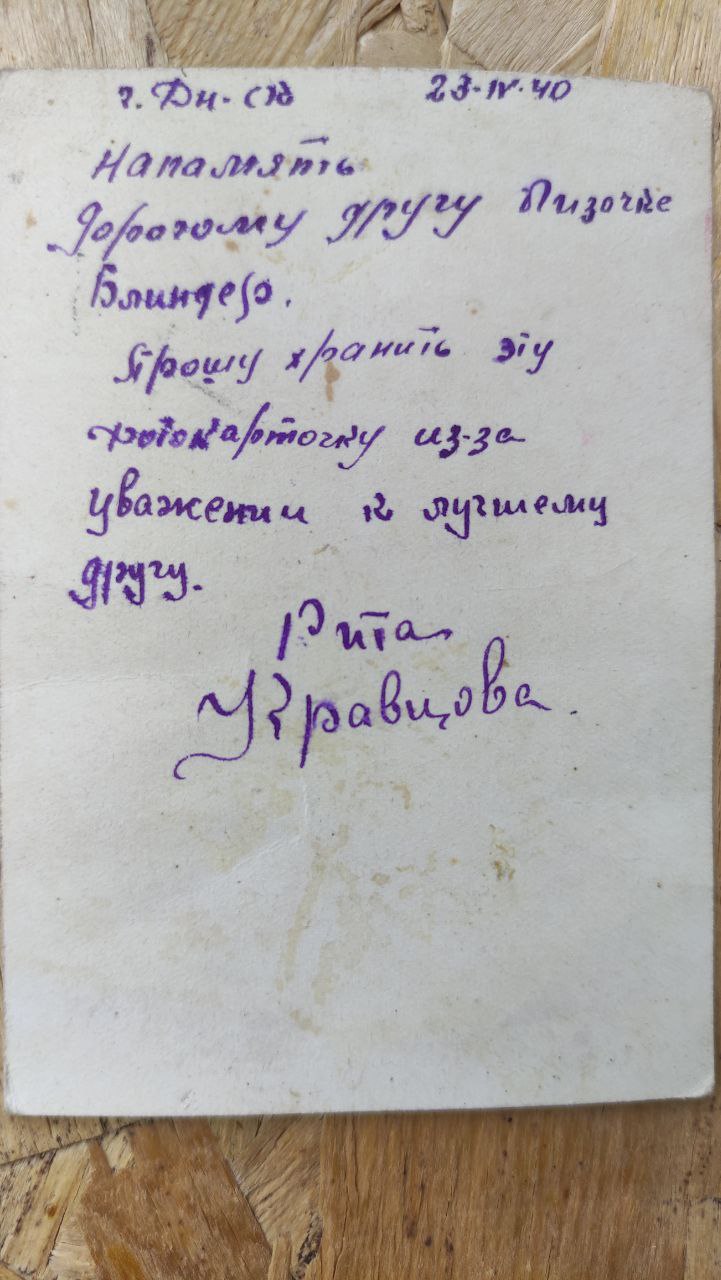 г. Дн-ск 23-IV-40
Напамять
дорогому другу Лизочке
Блиндер.
Прошу хранить эту
фотокарточку из-за
уважении к лучшему
другу.
Рита
Кравцова.